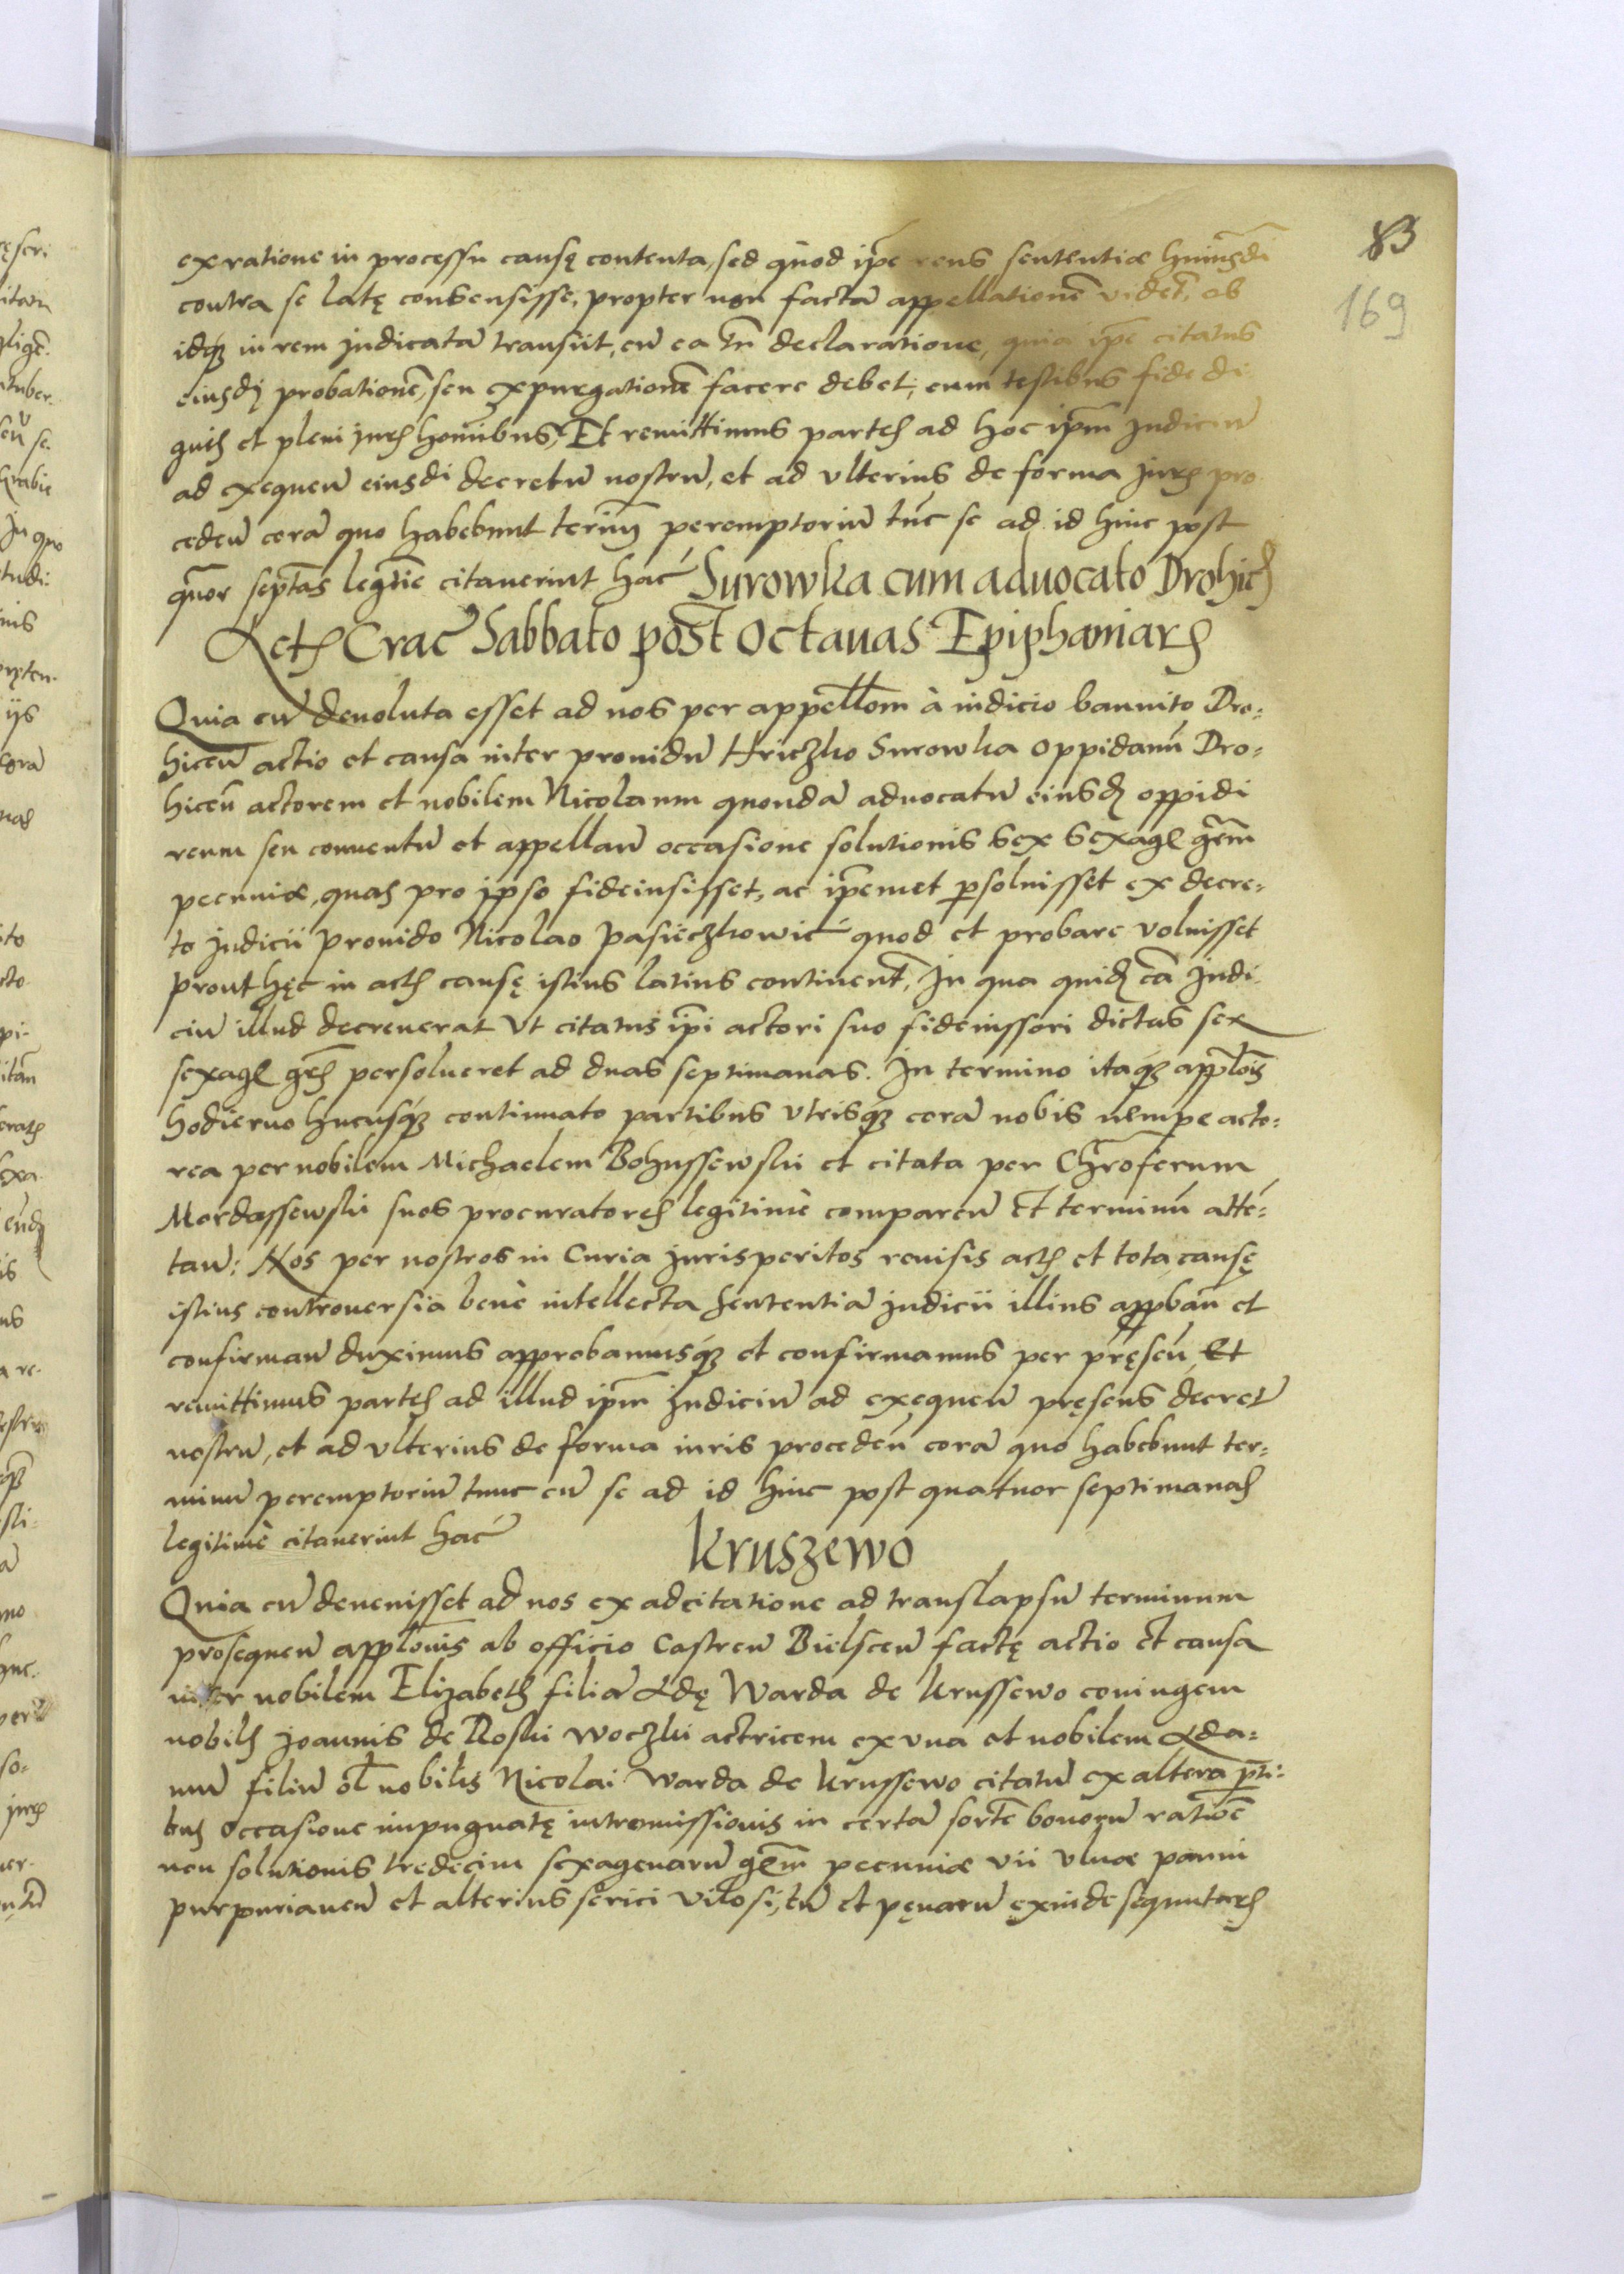 83
169
ex ratione in processu causę contenta, sed quod ip̃e reus sententiæ huiusdi
contra se latę consensisse, propter non factã appellationẽ videt̃, ob
idq₃ in rem judicatã transiit, cũ ea tñ declaratione, quia ip̃e citatus
eiusdj probationẽ, seu expurgationẽ facere debet, cum testibus fide di
gnis et pleni juris homĩbus, Et remittimus partes ad hoc ip̃m judiciũ
ad exequeñ eiusdi decretũ nostrũ, et ad vlterius de forma juris pro
cedeñ corã quo habebunt termĩ peremptoriũ tũc se ad id hinc post
quõr septãs legitĩe citauerint hac̃ Surowka cum aduocato Drohic̃
Actis Crac̃ Sabbato post Octauas Epiphaniarũ
Quia cũ deuoluta esset ad nos per appellõm à iudicio bannito Dro-
hiceñ actio et causa inter prouidũ Hriczko Surowka oppidanũ Dro-
hiceñ actorem et nobilem Nicolaum quondã aduocatũ eiusdj oppidi
reum seu conuentũ et appellañ occasione solutionis sex sexagẽ grẽm
pecuniæ, quas pro jpso fideiussisset, ac ip̃emet p̱soluisset ex decre-
to judicii prouido Nicolao Pasieczkowic̃ quod et probare voluisset
prout hęc in actis causę istius latius continent̃, In qua quidj cã judi
ciũ illud decreuerat vt citatus ip̃i actori suo fideiussori dictas sex
sexagẽ grẽs persolueret ad duas septimanas. In termino itaq₃ applõis
hodierno hucusq₃ continuato partibus vtrisq₃ corã nobis nempe acto-
rea per nobilem Michaelem Bohussewski et citata per Chr̃oferum
Mordassewski suos procuratores legitimè compareñ et terminũ atte-
tañ: Nos per nostros in Curia jurisperitos reuisis actis et tota causę
istius controuersia bene intellecta sententiã judicii illius appbañ et
confirmañ duximus approbamusq₃ et confirmamus per pręseñ Et
remittimus partes ad illud ip̃m judiciũ ad exequeñ pręsens decretũ
nostrũ, et ad vlterius de forma iuris procedeñ corã quo habebunt ter-
minũ peremptoriũ tunc cũ se ad id hinc post quatuor septimanas
legitimè citauerint hac̃
Kruszewo
Quia cũ deuenisset ad nos ex adcitatione ad translapsũ terminum
prosequeñ applõnis ab officio Castreñ Bielsceñ factę actio et causa
inter nobilem Elizabeth filiã Adę Warda de Krussewo coniugem
nobilis Joannis de Roski Woczki actricem ex vna et nobilem Ada-
mũ filiũ ol̃ nobilis Nicolai Warda de Krussewo citatũ ex altera pti-
bus occasione impugnatę intromissionis in certã sortẽ bonorũ ratiõe
non solutionis tredecim sexagenarũ grẽm pecuniæ vii vlnæ panni
purpurianeñ et alterius serici vilosi, tũ et pęnarũ exinde sequutarũ